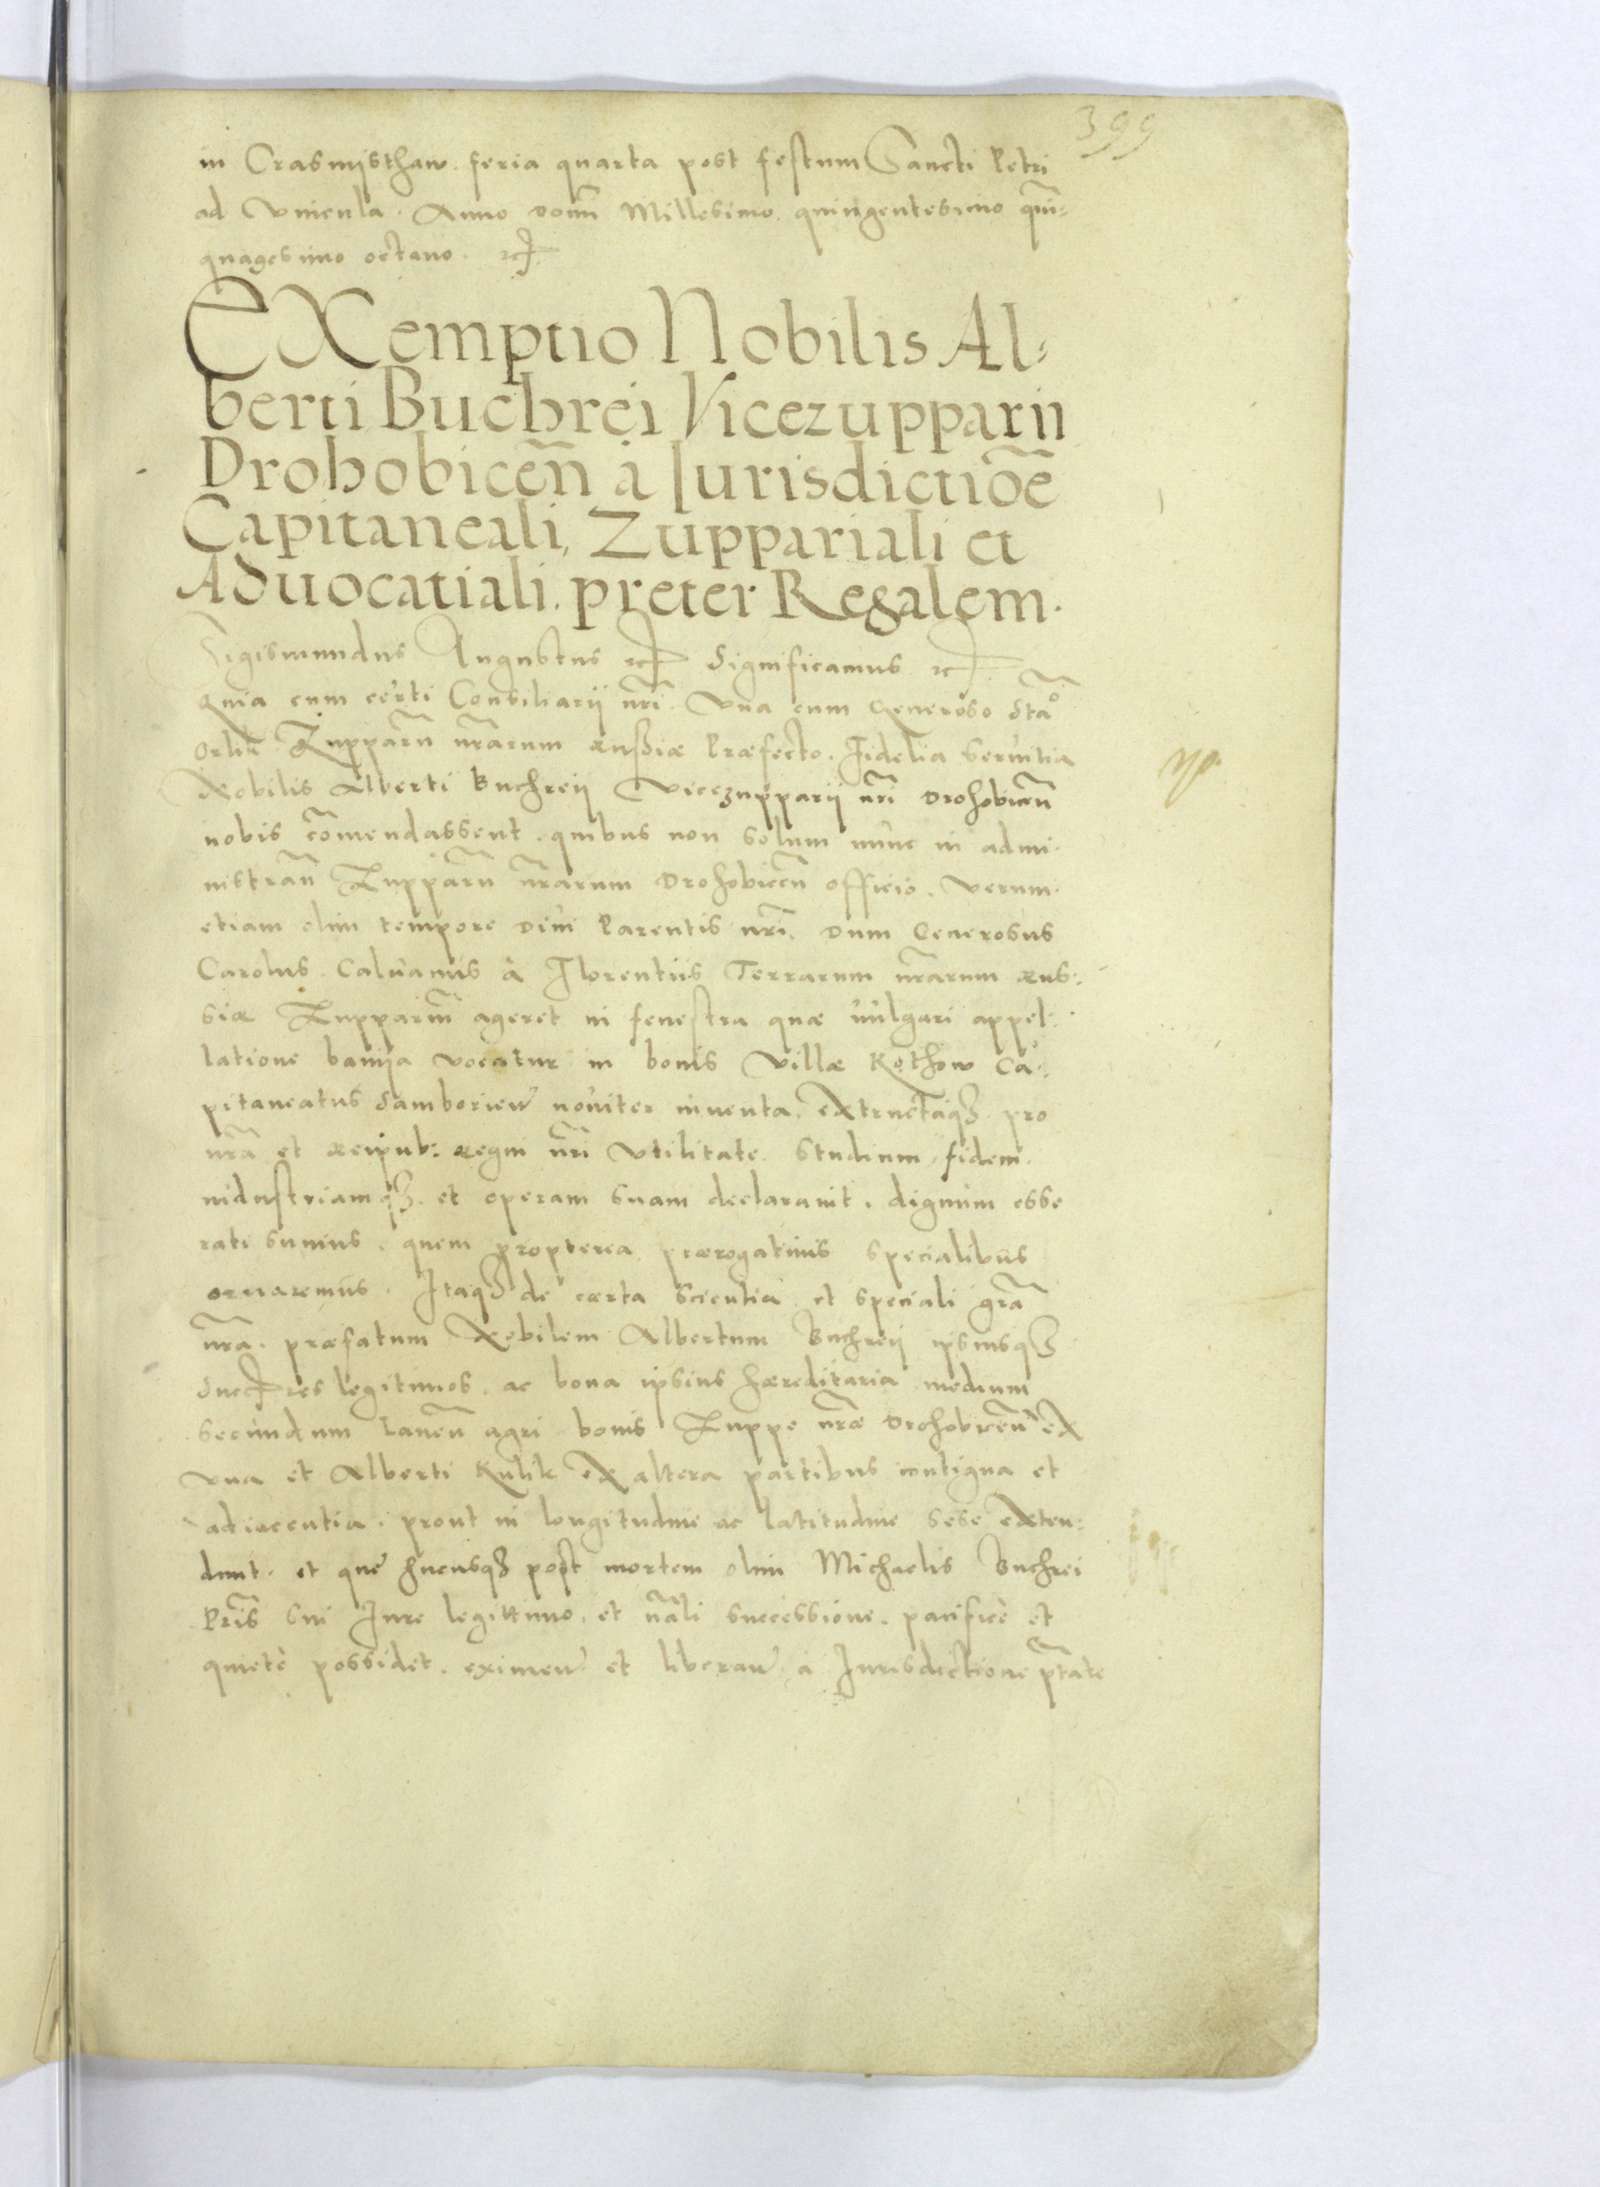 399
in Crasnijsthaw feria quarta post festum Sancti Petri
ad Vincula. Anno domi Millesimo quingentesimo quin-
quagesimo octavo. etc.
EXemptio Nobilis Al-
berti Buchrei Vicezupparii
Drohobiceñ a Iurisdictiōe
Capitaneali, Zuppariali et
Advocatiali. preter Regalem.
Sigismundus Augustus etc. Significamus etc.
Quia cum certi Consiliarij nri. Una cum Generoso
Zupparū nrarum Russiæ Præfecto. Fidelia servitia
Nobilis Alberti Buchreij Vicezupparij nri Drohobiceñ
nobis cōmendassent. quibus non solum nunc in admi-
nistrañ Zupparū nrarum Drohobiceñ officio. verum
etiam olim tempore Divi Parentis nri. Dum Generosus
Carolus Calvanus à Florentiis Terrarum nrarum Rus-
siæ Zuppariū ageret in fenestra quæ vulgari appel-
latione banija vocatur in bonis Villæ Kothow Ca-
pitaneatus Samborieñ noviter inventa. extructaqz pro
nra et Reipub: Regni nri Utilitate. studium fidem
industriamqz. et operam suam declaravit. dignum esse
rati sumus. quem propterea prærogativis specialibus
ornaremus. Itaqz de certa scientia et speciali gra
nra. præfatum Nobilem Albertum Buchreij ipsiusqz
legitimos. ac bona ipsius hæreditaria medium
secundum laneū agri bonis Zuppe nræ Drohobiceñ ex
una et Alberti Kulik ex altera partibus contigua et
adiacentia. prout in longitudine ac latitudine sese exten-
dunt. et que hucusqz post mortem olim Michaelis Buchrei
Pris sui Iure legittimo. et nāli successione. pacifice et
quietè possidet. eximeñ et liberañ a Iurisdictione ptate